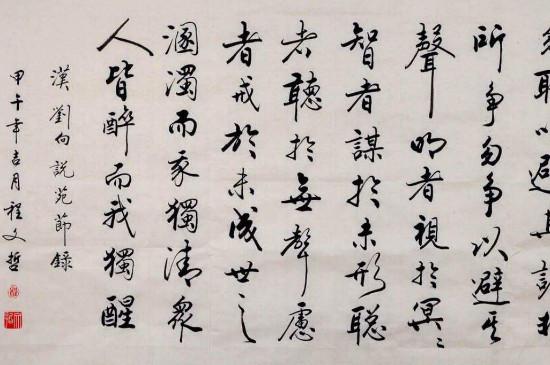 取以避其
所争勿争以避其
聲明者視於冥〻
智者謀於未形聡
者聽於無聲慮
者戒於未成世之
溷濁而我獨清衆
人皆醉而我獨醒
漢劉向說苑節錄
甲午年吉月程文哲